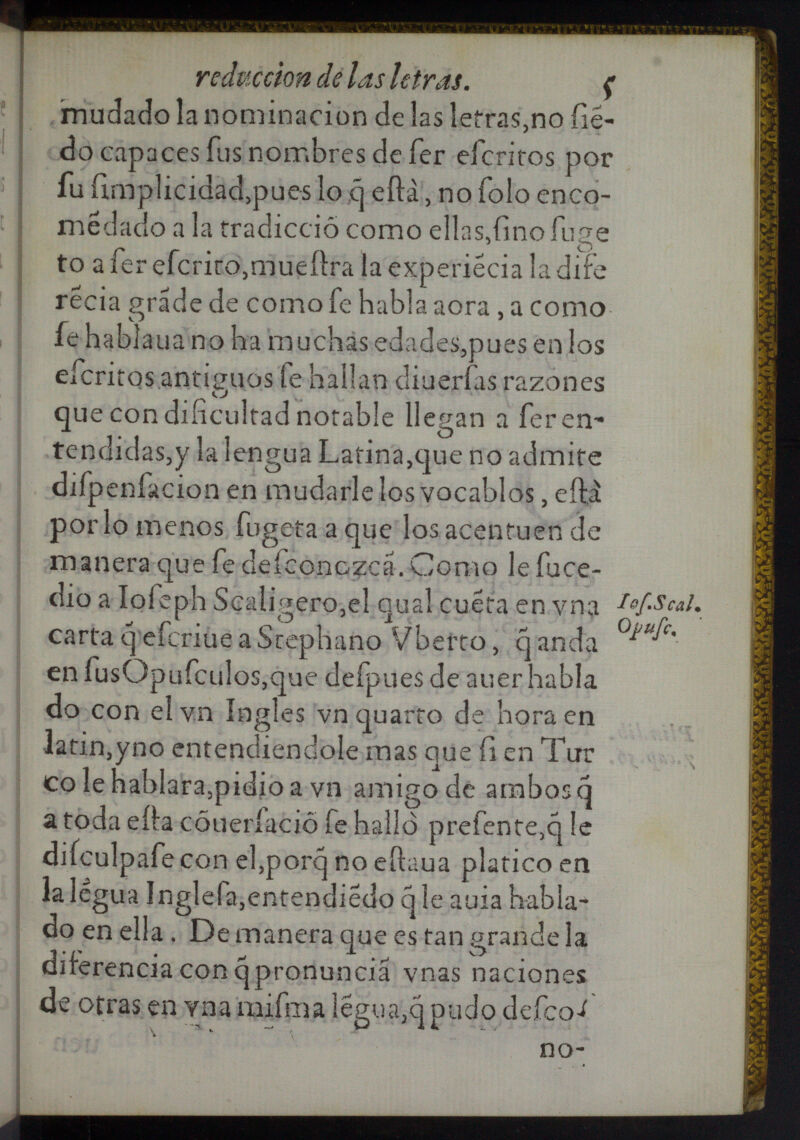 reduccion de las letras. 5
mudado la nominacion de las letras,no siẽ-
do capaces sus nombres de ser escritos por
su simplicidad,pues lo q̃ està, no solo enco-
mẽdado a la tradicciõ como ellas,sino suge
to a ser escrito,muestra la experiẽcia la dife
rẽcia grãde de como se habla aora, a como
se hablaua no ha muchas edades,pues en los
escritos antiguos se hallan diuersas razones
que con dificultad notable llegan a ser en-
tendidas,y la lengua Latina,que no admite
dispensacion en mudarle los vocablos, està
por lo menos sugeta a que los acentuen de
manera que se desconozcã. Como le suce-
dio a Ioseph Scaligero,el qual cuẽta en vna
Ios.Scal.
carta q̃ escriue a Stephano Vberto, q̃ anda
Opusc.
en sus Opusculos,que despues de auer habla
do con el vn Ingles vn quarto de hora en
latin,y no entendiendole mas que si en Tur
co le hablara,pidio a vn amigo de ambos q̃
a toda esta cõuersaciõ se hallò presente,q̃ le
disculpase con el,porq̃ no estaua platico en
la lẽgua Inglesa,entendiẽdo q̃ le auia habla-
do en ella. De manera que es tan grande la
diferencia con q̃ pronunciã vnas naciones
de otras en vna misma lẽgua,q̃ pudo desco-
no-